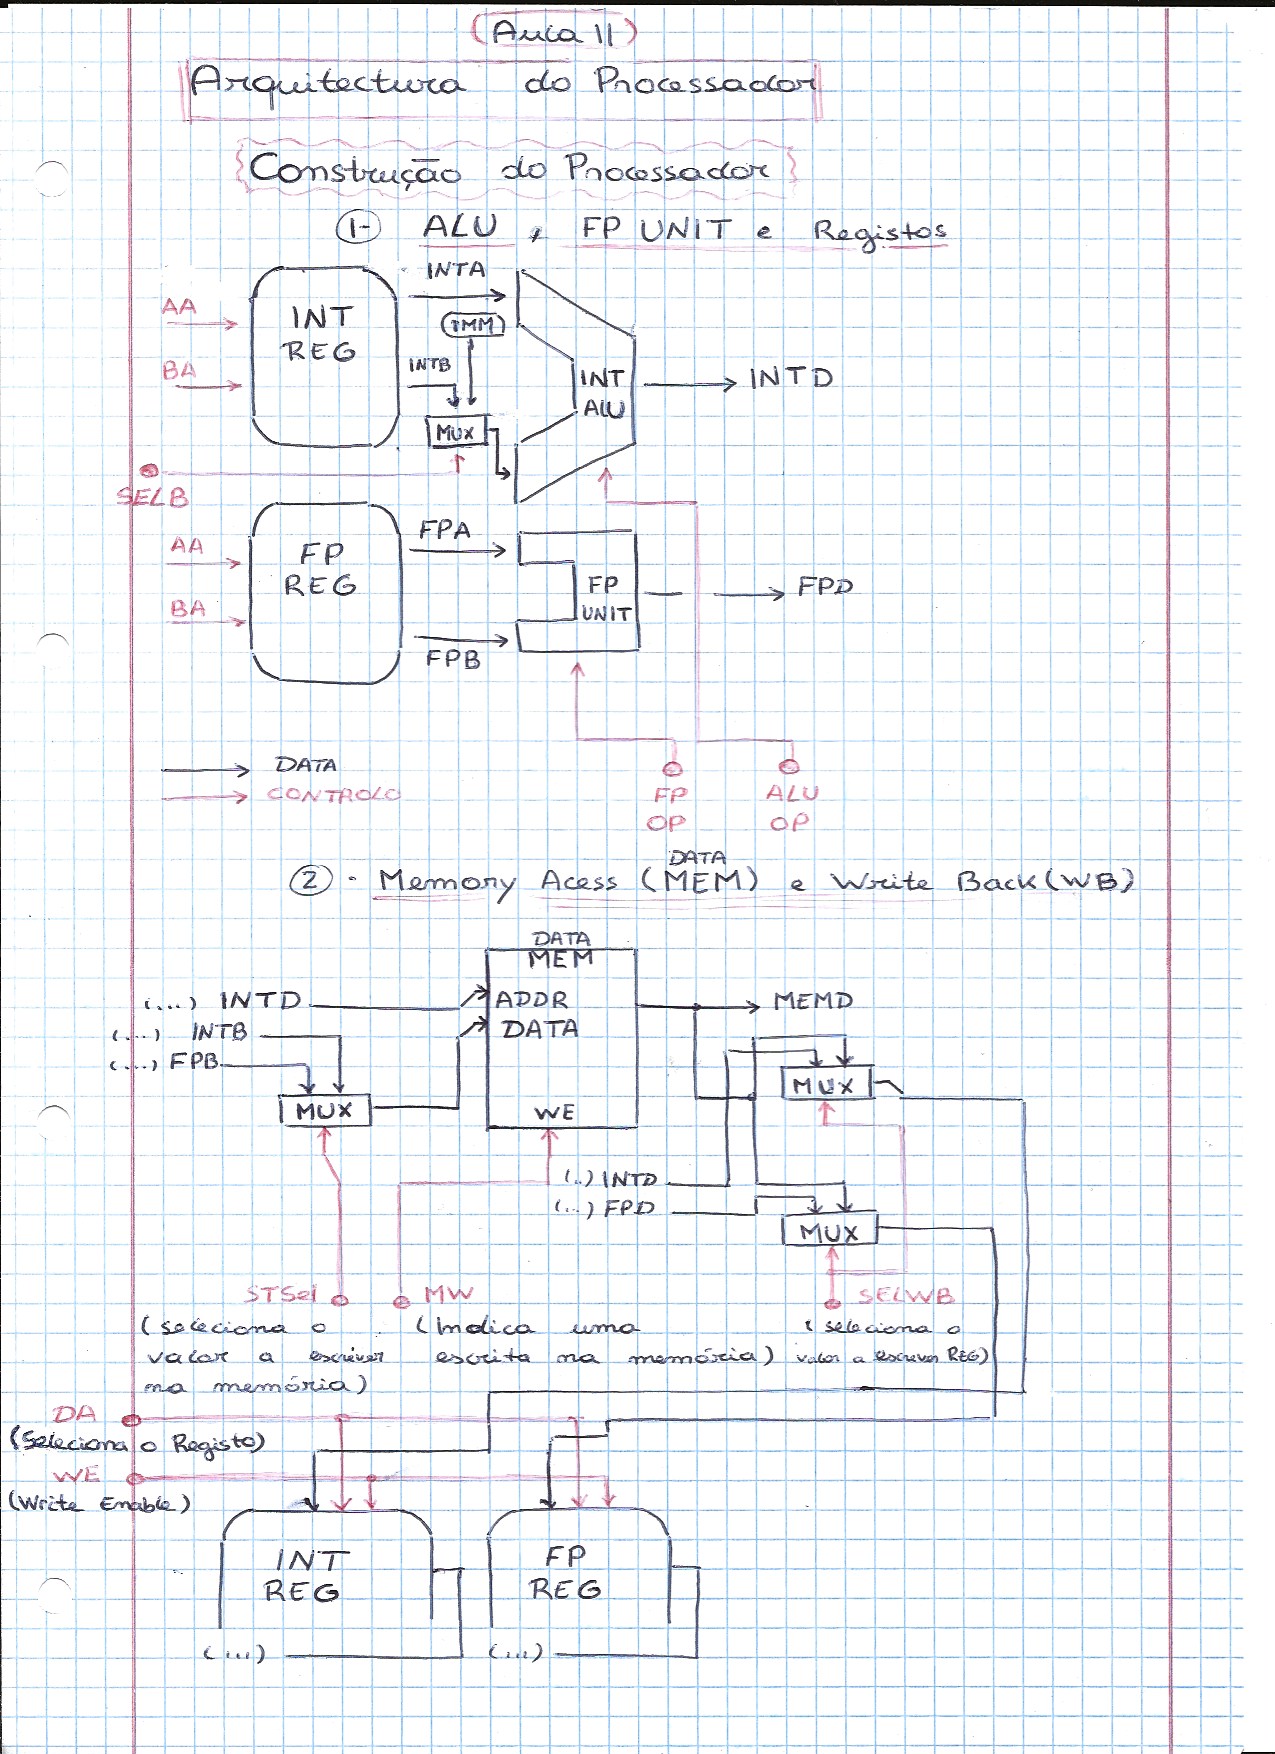 (Aula 11)
Arquitectura do Processador
Construção do Processador
1- ALU, FP UNIT e Registos
INTA
AA
INT
REG
IMM
BA
INTB
INT
ALU
INTD
MUX
SELB
FPA
AA
FP
REG
FP
UNIT
FPD
BA
FPB
DATA
CONTROLO
FP
OP
ALU
OP
DATA
2 - Memory Acess (MEM) e Write Back (WB)
DATA
MEM
(...) INTD
ADDR
MEMD
(...) INTB
DATA
(...) FPB
MUX
MUX
WE
(..) INTD
(...) FPD
MUX
STSel
MW
SELWB
(seleciona o
valor a escrever
na memória)
(Indica uma
escrita na memória)
(seleciona o
valor a escrever REG)
DA
(Seleciona o Registo)
WE
(Write Enable)
INT
REG
FP
REG
(...)
(...)